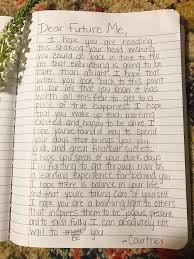 Dear Future Me,
I hope you are reading
this shaking your head wishing
you could go back in time to tell
me that everything is going to be
more than alright. I hope that
when you look back to this point
in our life that you know it was
worth all this fear to get to a
place of true happiness. I hope
that you wake up each morning
excited and happy to be alive. I
hope you've found a way to spend
your days that brings you joy
and great and fulfilling success.
I hope you spent all your dark days
in fighting to get through now as
a learning experience far behind you.
I hope there is balance in your life,
and that you're taking care of yourself.
I hope you are a beaming light to others
that inspires them to be joyous, present,
and to exist. I can absolutely not
wait to Be you
-Courtney